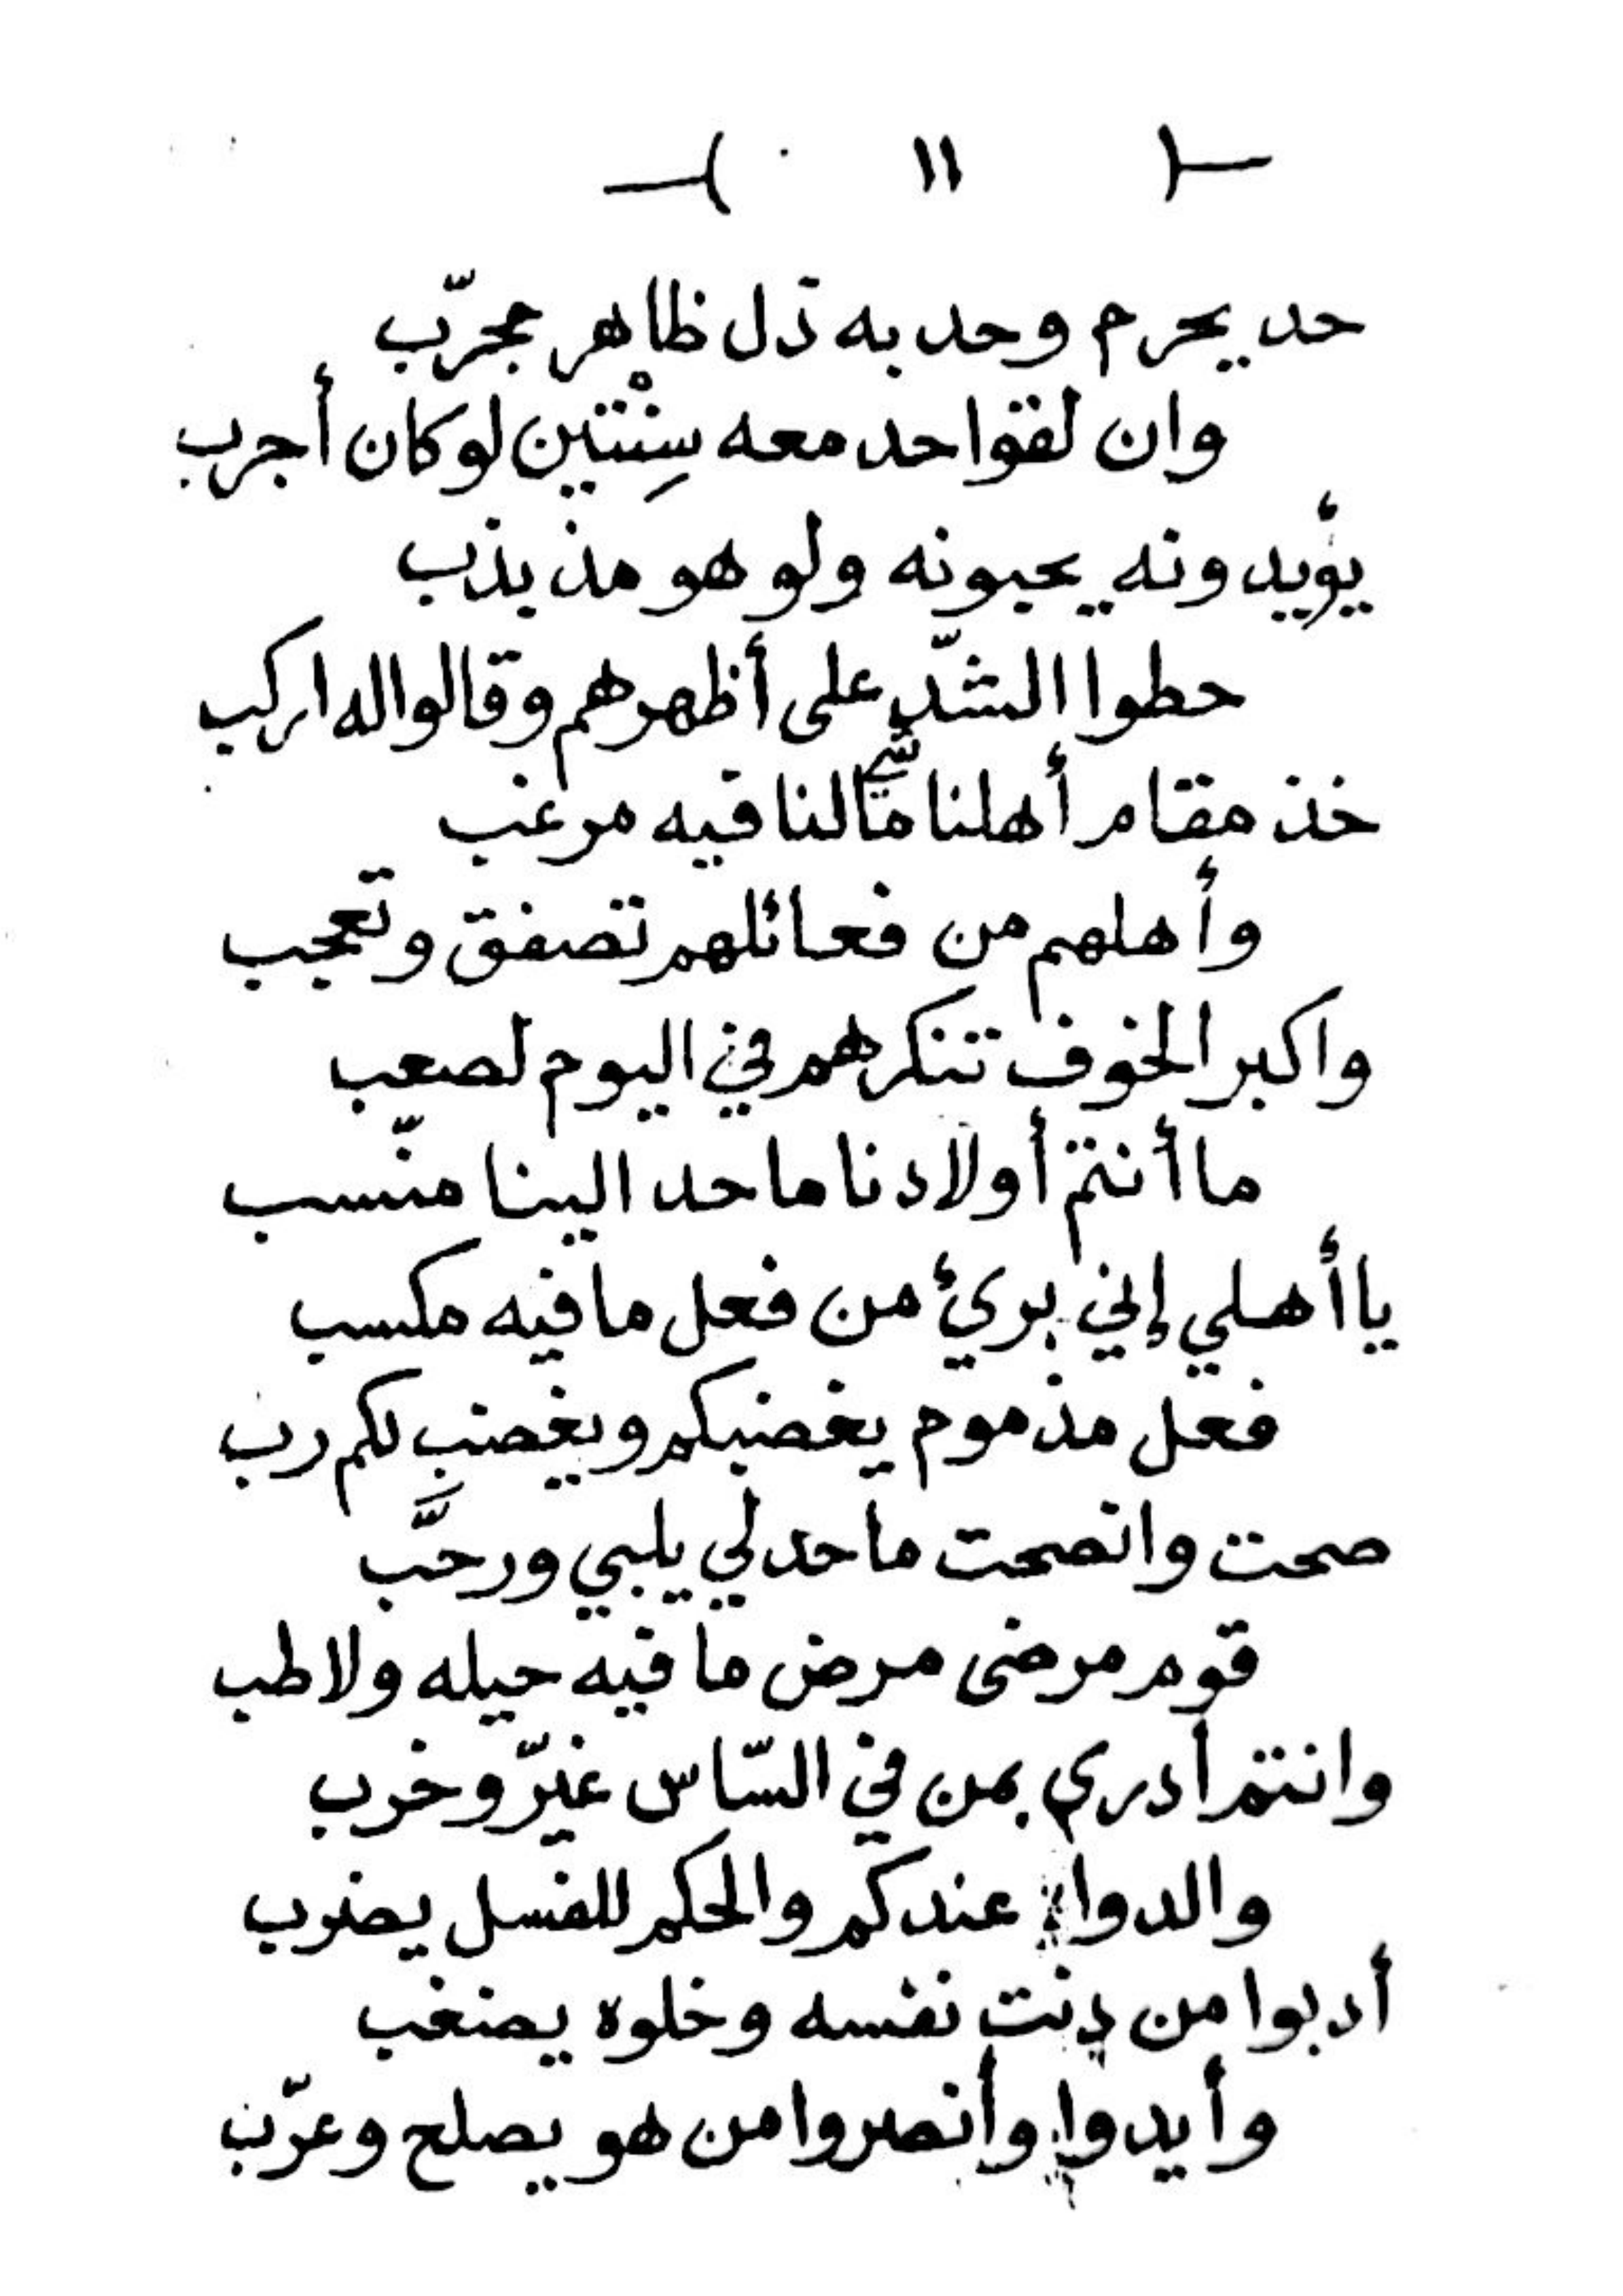 -( ١١ )-
حد يحرم وحد به ذل ظاهر مجرّب
وان لفتوا حد معه سِنْتين لوكان أجرب
يؤيدونه يحبونه ولو هو مذبذب
حطوا الشدّ على أظهرهم وقالوا له اركب
خذ مقام أهلنا مالنا فيه مرغب
وأهلهم من فعائلهم تصفق وتعجب
واكبر الخوف تنكرهم في اليوم لصعب
ما أنتم أولادنا ما حد الينا منّسب
يا أهلي إني بريء من فعل ما فيه مكسب
فعل مذموم يغضبكم ويغضب لكم رب
صحت وانصحت ما حد لي يلبي ورحَّب
قوم مرضى مرض ما فيه حيله ولا طب
وانتم أدرى بمن في السّاس غيّر وخرب
والدواء عندكم والحكم للفسل يضرب
أدبوا من دنت نفسه وخلوه يضغب
وأيدوا وأنصروا من هو يصلح وعرّب